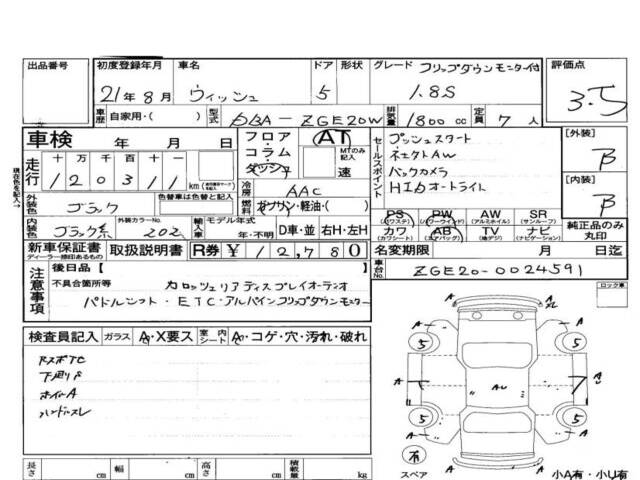 出品番号
初度登録年月 車名 ドア 形状 グレード フリップダウンモニター付 評価点
21年8月 ウィッシュ 5 1.8S 3.5
車歴 自家用・( ) 型式 DBA-ZGE20W 排気量 1800cc 定員 7人
車検 年 月 日
フロア・コラム・ダッシュ AT MTのみ記入 速
走行 十 万 千 百 十 一
1 2 0 3 1 1 km
現在色を記入→
外装色 ブラック 色替車は色替と記入
冷房 AAC
燃料 ガソリン・軽油・( )
内装色 ブラック系 外装カラーNo. 202
輸入車 モデル年式 年・不明 D車・並 右H・左H
セールスポイント
プッシュスタート
ネエクトAW
バックカメラ
HIDオートライト
[外装] B
[内装] B
PS (パワステ) PW (パワーウインド) AW (アルミホイル) SR (サンルーフ)
カワ (カワシート) AB (エアバッグ) TV (地デジ) ナビ (ナビゲーション)
純正品のみ丸印
新車保証書 ディーラー捺印あるもの 取扱説明書 R券 ¥12,780
名変期限 月 日迄
車台No. ZGE20-0024591
注意事項
後日品【 】
不具合箇所等 カロッツェリアディスプレイオーディオ
パドルシフト・ETC・アルパインフリップダウンモニター
ロック車
検査員記入 ガラス A・X要ス 室内シート A・コゲ・穴・汚れ・破れ
下廻りS
ホイルA
ハンドルスレ
A
5 5
A AU 7
5 5
A A
有
スペア
小A有・小U有
長さ cm 幅 cm 高さ cm 積載量 kg